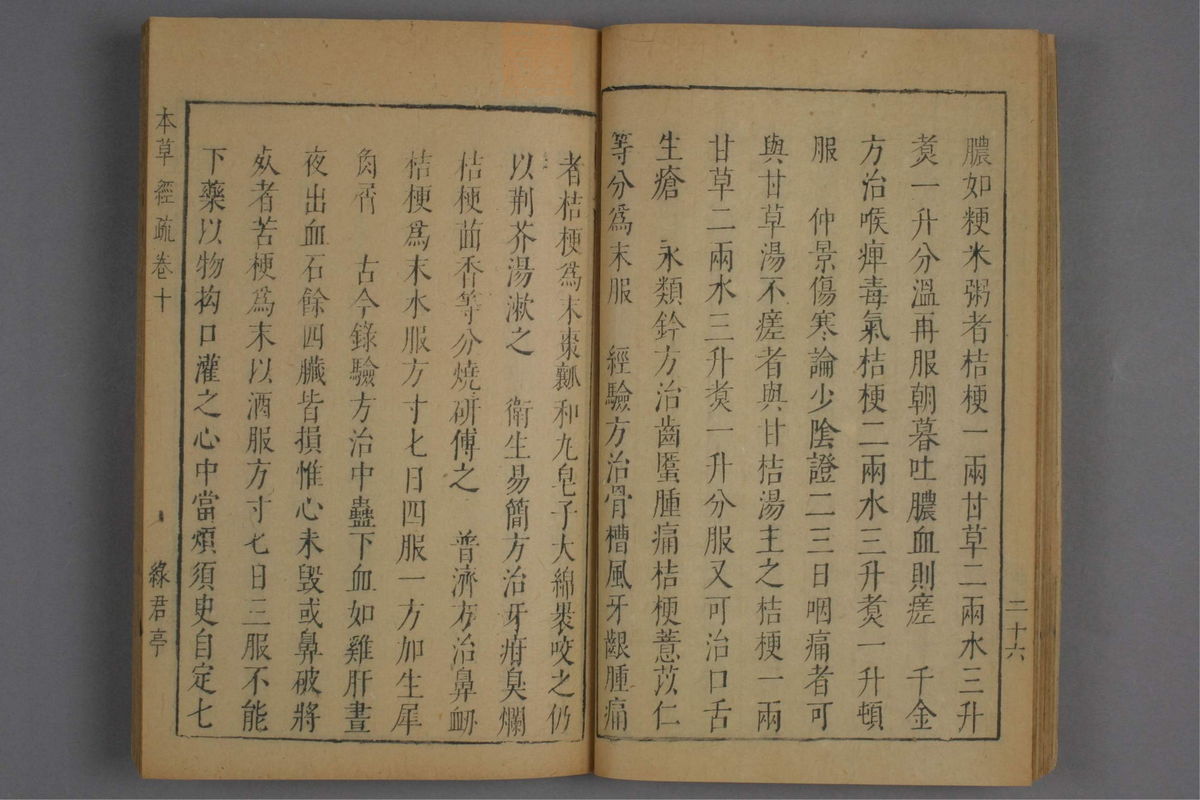 膿如粳米粥者桔梗一兩甘草二兩水三升
煑一升分溫再服朝暮吐膿血則瘥　千金
方治喉痺毒氣桔梗二兩水三升煑一升頓
服　仲景傷寒論少陰證二三日咽痛者可
與甘草湯不瘥者與甘桔湯主之桔梗一兩
甘草二兩水三升煑一升分服又可治口舌
生瘡　永類鈐方治齒䘌腫痛桔梗薏苡仁
等分爲末服　經驗方治骨槽風牙齦腫痛
二十六
者桔梗爲末棗瓤和丸皂子大綿裹咬之仍
以荆芥湯漱之　衛生易簡方治牙疳臭爛
桔梗茴香等分燒研傅之　普濟方治鼻衂
桔梗爲末水服方寸七日四服一方加生犀
角屑　古今錄驗方治中蠱下血如雞肝晝
夜出血石餘四臟皆損惟心未毀或鼻破將
歿者苦梗爲末以酒服方寸七日三服不能
下藥以物拘口灌之心中當煩須臾自定七
本草經疏卷十
綠君亭